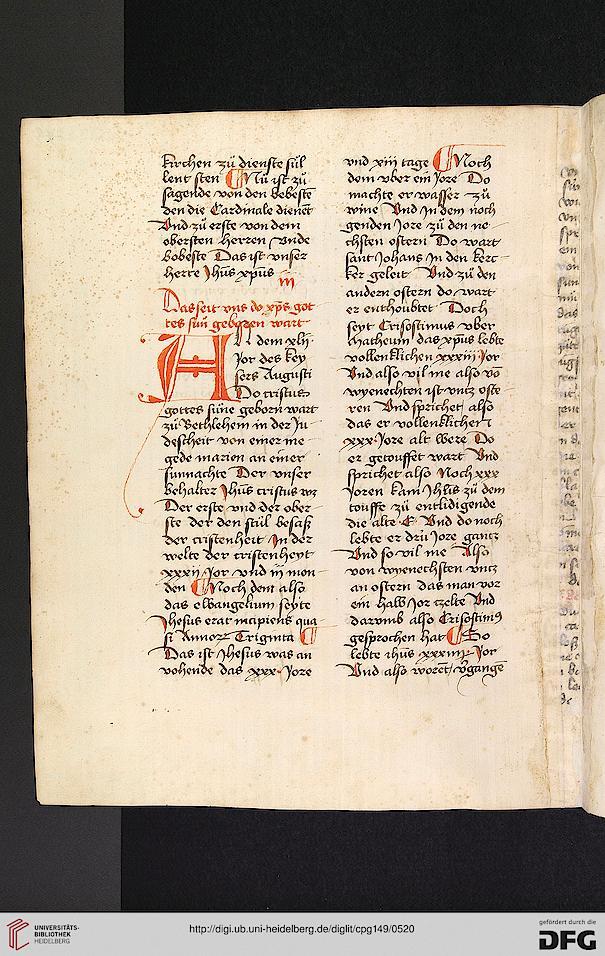 kirchen zü dienste sül
lent sten Nü ist zü
sagende von den bebeste
den die Cardinale dienet
Vnd zü erste von dem
obersten herren vnde
bobeste Das ist vnser
herre Jhus xpus
iij
Das seit vns do xps got
tes sun geboren wart
An dem xlij
Jor des key
sers Augusti
Do cristus
gottes süne geborn wart
zü Bethlehem in der Ju
descheit von einer me
gede marien an einer
sunnachte Der vnser
behalter Jhus cristus wz
Der erste vnd der ober
ste der den stül besaß
der cristenheit In der
welte der cristenheyt
xxxij Jor vnd iij mon
den Noch dem also
das elbangelium seyte
Jhesus erat incipiens qua
si Annorum Triginta
Das ist Jhesus was an
vohende das xxx Jore
vnd xiij tage Noch
dem vber ein Jore Do
machte er wasser zü
wine Vnd Jn dem noch
genden Jore zü den ne
chsten ostern Do wart
sant Johans Jn den kerc
ker geleit Vnd zü den
andern ostern do wart
er enthoubtet Doch
seyt Crisostimus vber
Matheum das xpus lebte
vollenklichen xxxiij Jor
Vnd also vil me also vo
wyenechten ist vntz oste
ren Vnd sprichet also
das er vollenklicher
xxx Jore alt were Do
er getouffet wart Vnd
sprichet also Noch xxx
Joren kam Jhus zü dem
touffe zü entlidigende
die alte E Vnd do noch
lebte er drü Jore gantz
Vnd so vil me Also
von wyenechsten vntz
an ostern das man vor
ein halb Jor czelte Vnd
darumb also Crisostimus
gesprochen hat So
lebte ihus xxxiiij Jor
Vnd also worent vergange
UNIVERSITÄTS-
BIBLIOTHEK
HEIDELBERG
http://digi.ub.uni-heidelberg.de/diglit/cpg149/0520
gefördert durch die
DFG